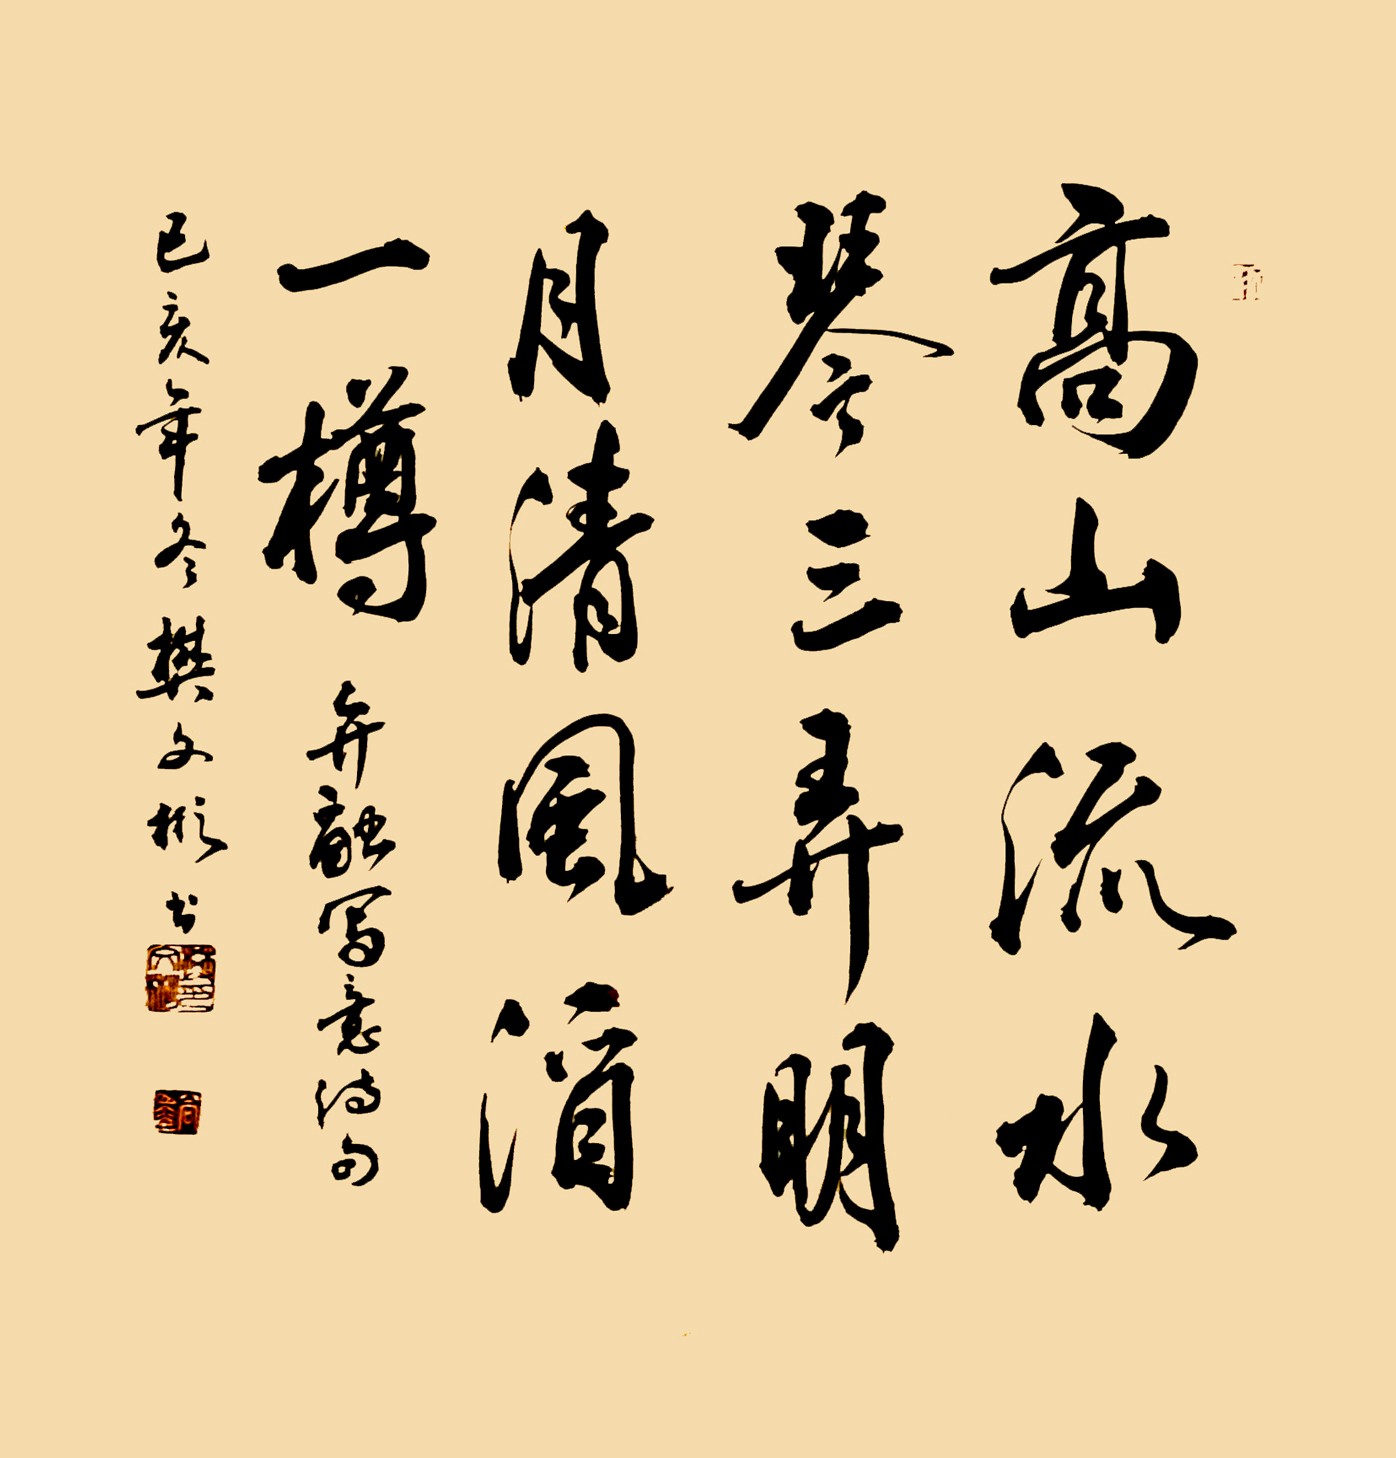 高山流水
琴三弄明
月清風酒
一樽 弁融写意诗句
己亥年冬樊文彬书